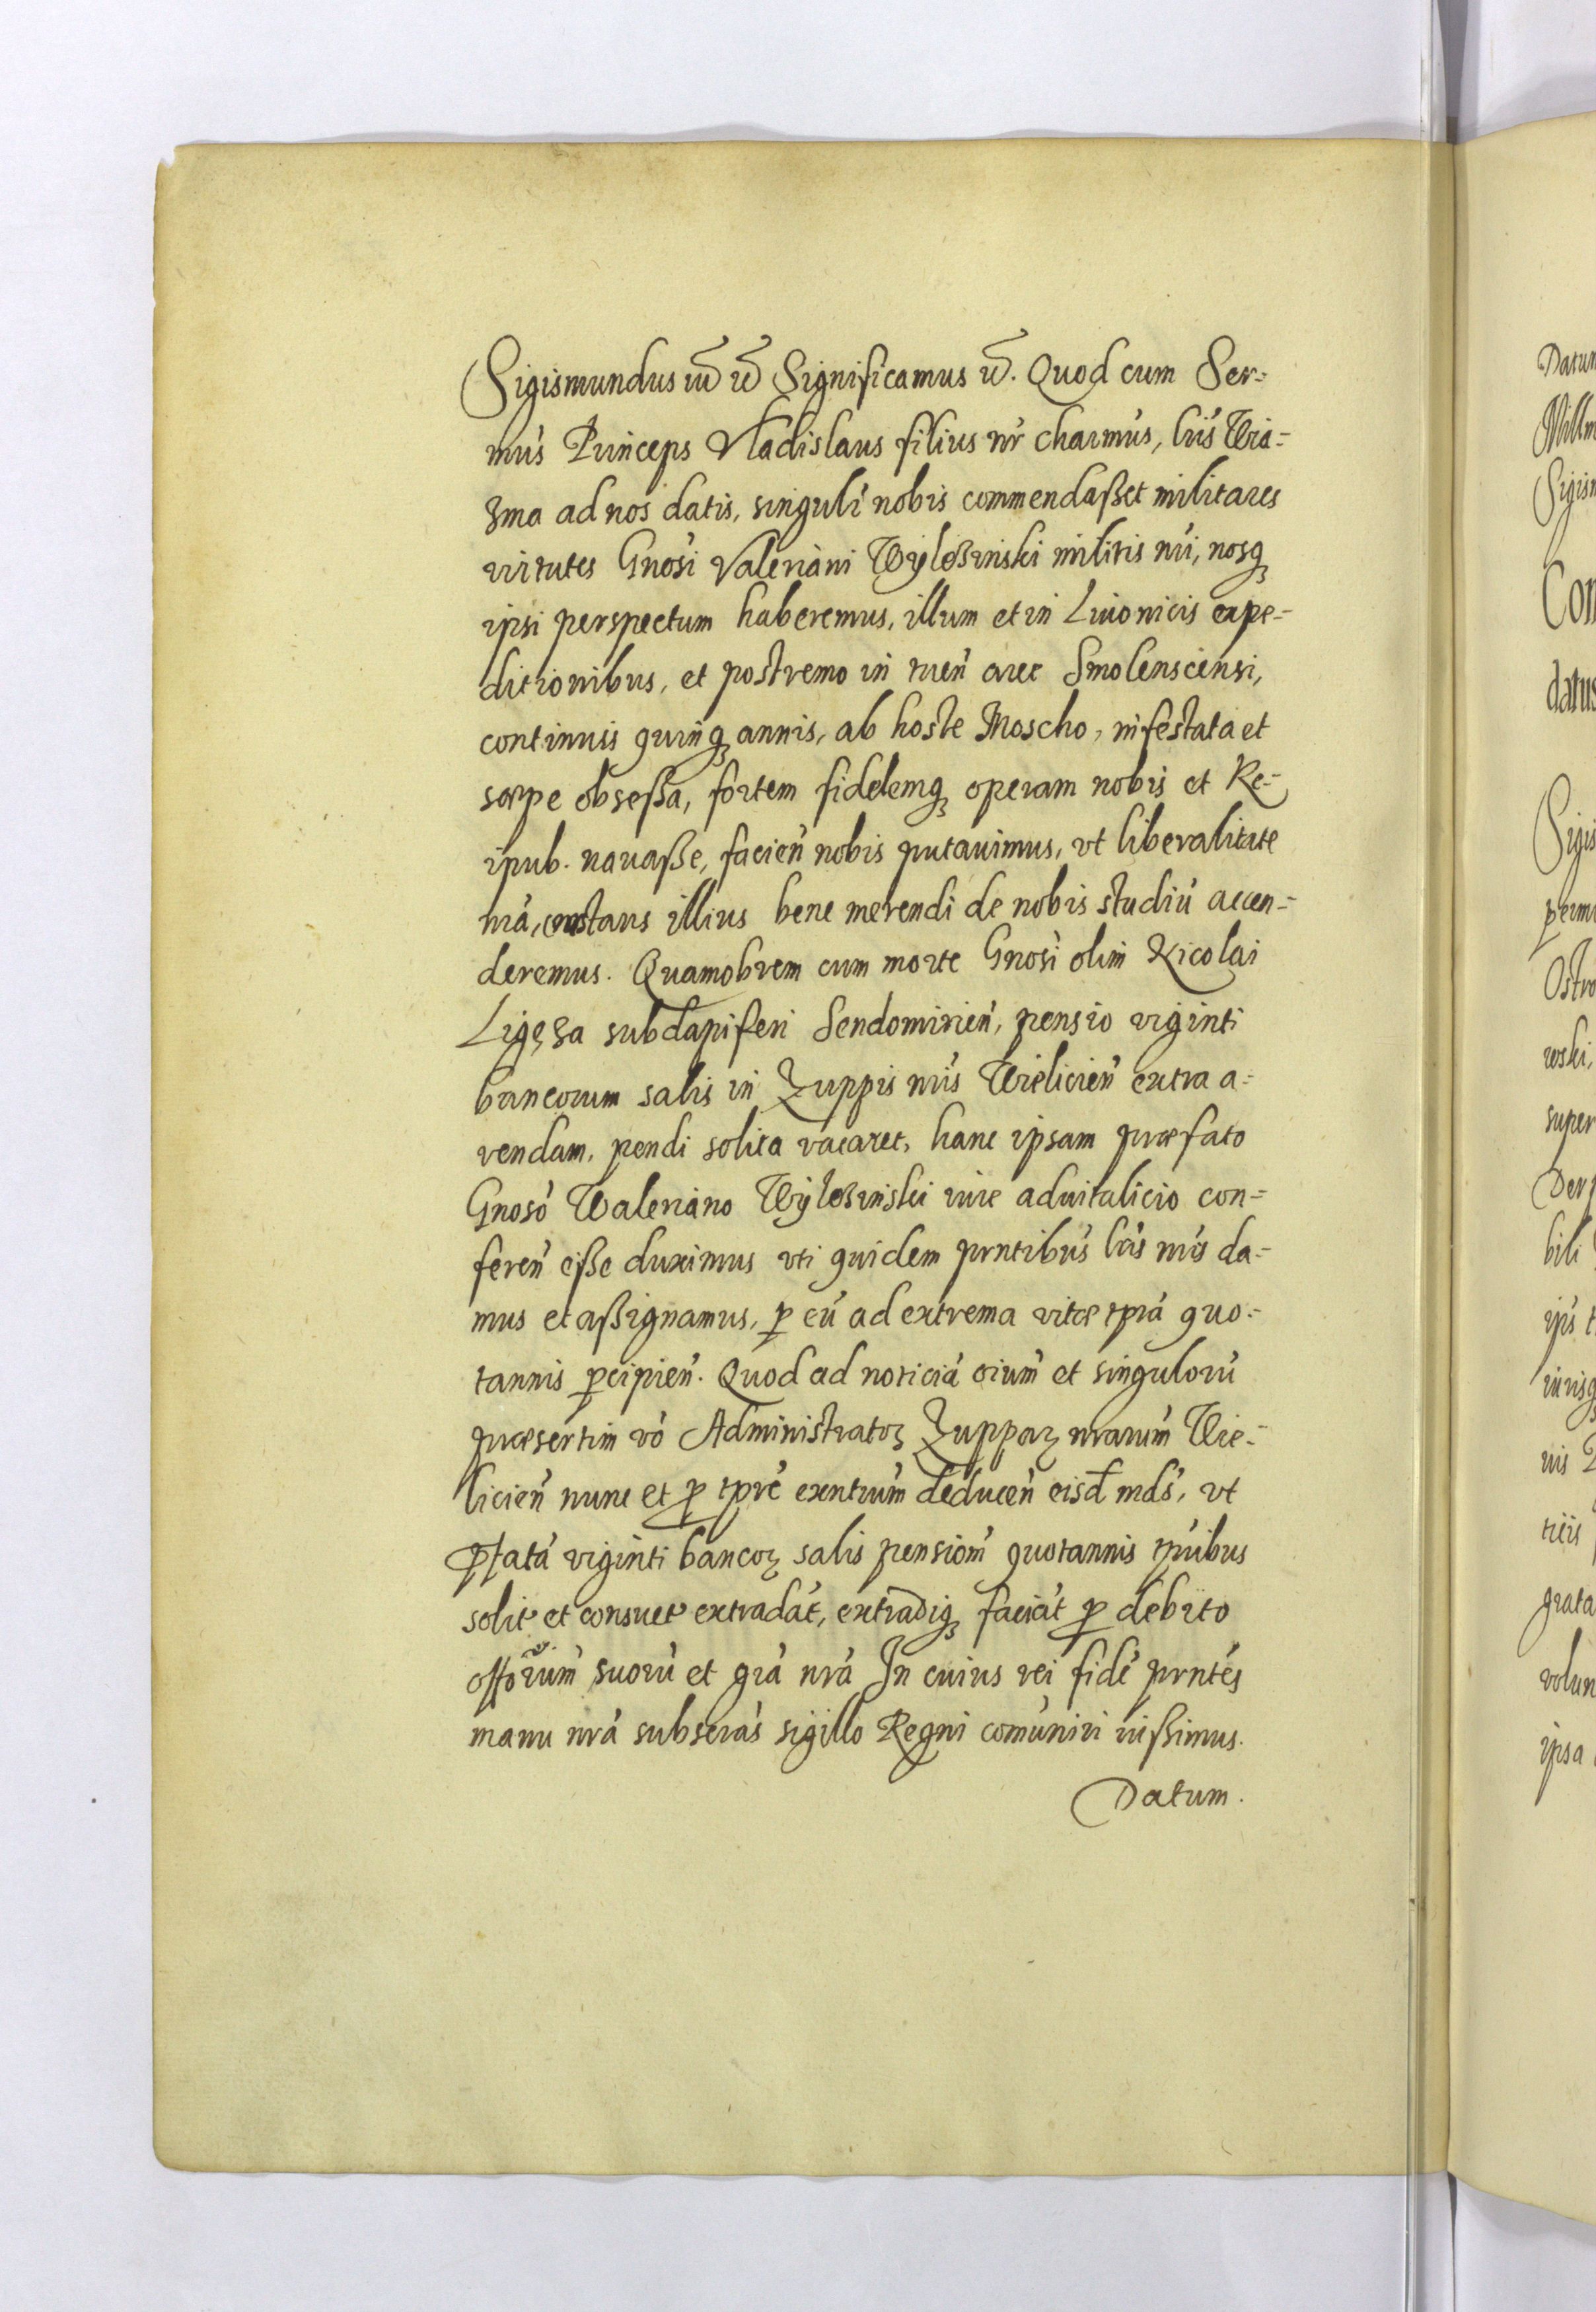 Sigismundus etc. etc. Significamus etc. Quod cum Ser-
mus Princeps Vladislaus filius nr charmus, lris Wia-
zma ad nos datis, singuli nobis commendaßet militares
virtutes Gnosi Valeriani Wyleszinski militis nri, nosq
ipsi perspectum haberemus, illum et in Liuonicis expe-
ditionibus, et postremo in tuen arce Smolenscensi,
continuis quinq annis, ab hoste Moscho, infestata et
sæpe obseßa, fortem fidelemq operam nobis et Re-
ipub. nauaße, facien nobis putauimus, vt liberalitate
nrá, illius bene merendi de nobis studiú accen-
deremus. Quamobrem cum morte Gnosi olim Nicolai
Ligęza subdapiferi Sendomirien, pensio viginti
bancorum salis in Zuppis nris Wielicien extra a-
rendam, pendi solita vacaret, hanc ipsam præfato
Gnoso Waleriano Wyleszinski iure aduitalicio con-
feren eße duximus vti quidem prntibus lris nris da-
mus et aßignamus, p eú ad extrema vitæ tprá quo-
tannis pcipien. Quod ad noticiá oium et singulorú
præsertim vó Administratoꝝ Zupparꝝ nrarum Wie-
licien nunc et p tpre exntium deducen eisd mds, vt
pfatá viginti bancoꝝ salis pensiom quotannis tpribus
solit et consuet extradát, extradiq faciát p debito
offorum suorú et grá nrá In cuius rei fidé prntes
manu nrá subscras sigillo Regni comuniri iußimus.
Datum.
Datum
Sigism
Con
datus
Sigis
permi
Ostro
wski,
super
Der
bili
grata
volun
ipsa